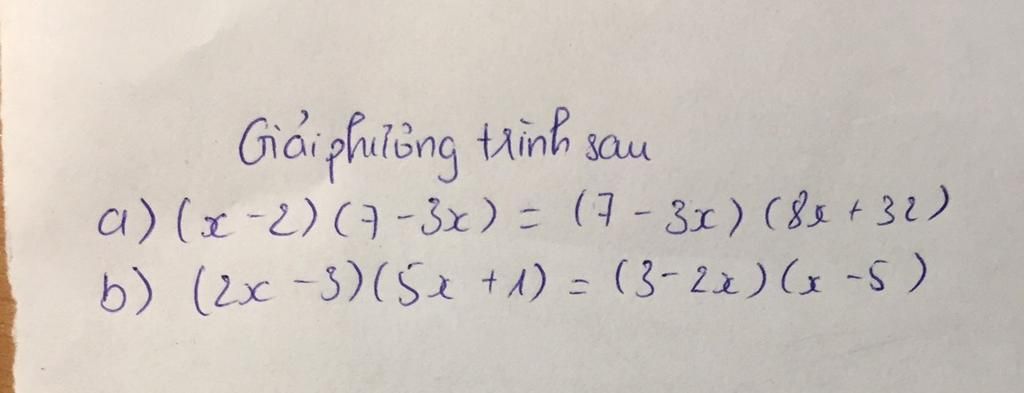 Giải phương trình sau
a) (x - 2) (7 - 3x) = (7 - 3x) (8x + 32)
b) (2x - 3) (5x + 1) = (3 - 2x) (x - 5)